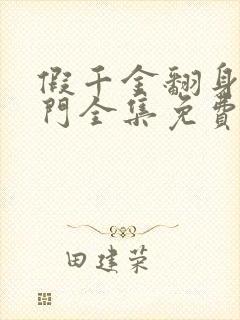 假千金翻身
門全集免費
田建荣